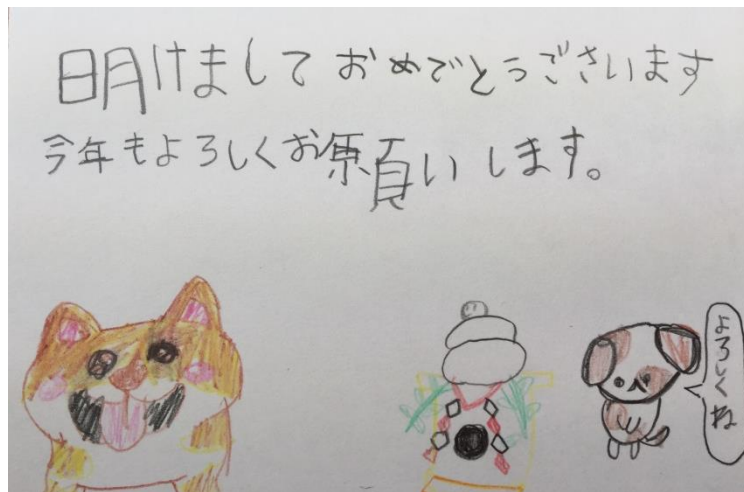 明けましておめでとうございます
今年もよろしくお願いします。
よろしくね